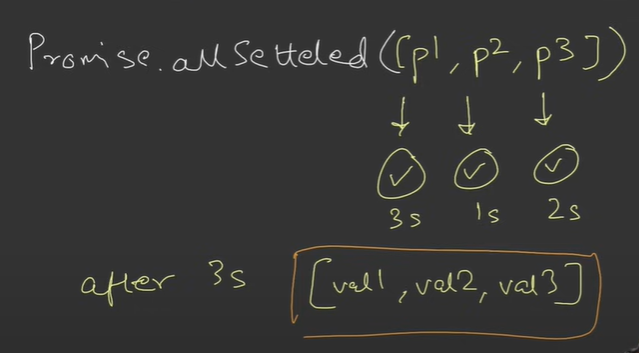 Promise.allSetteled([p1, p2, p3])
3s 1s 2s
after 3s [val1, val2, val3]